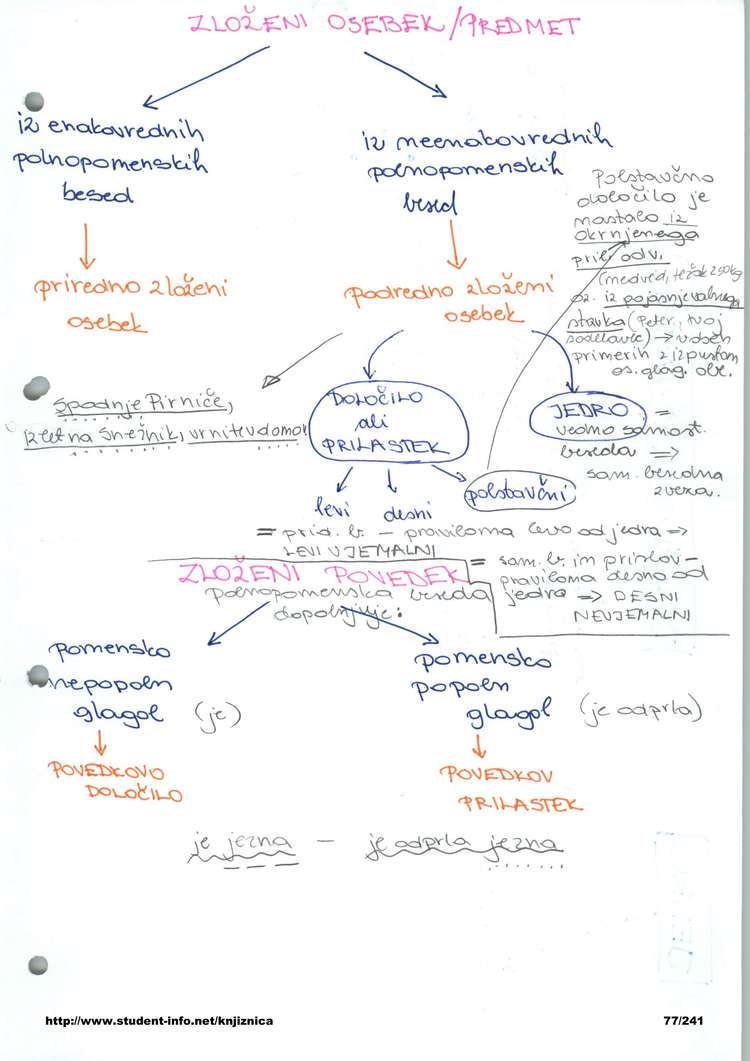 ZLOŽENI OSEBEK/PREDMET
iz enakovrednih
polnopomenskih
besed
iz neenakovrednih
polnopomenskih
besed
priredno zloženi
osebek
podredno zloženi
osebek
Polstavčno
določilo je
nastalo iz
okrnjenega
pril. odv.
(medved, težak 250kg
oz. iz pojasnjevalnega
stavka (Peter, tvoj
sodelavec) → v obeh
primerih z izpustom
os. glag. obl.
Spodnje Pirniče,
izlet na Snežnik, vrnitev domov
DOLOČILO
ali
PRILASTEK
JEDRO =
vedno samost.
beseda =>
sam. besedna
zveza.
levi
desni
polstavčni
= prid. b. – praviloma levo od jedra =>
LEVI UJEMALNI
= sam. b. in prislov –
praviloma desno od
jedra => DESNI
NEUJEMALNI
ZLOŽENI POVEDEK
polnopomenska beseda
dopolnjuje:
pomensko
nepopoln
glagol (je)
pomensko
popoln
glagol (je odprla)
POVEDKOVO
DOLOČILO
POVEDKOV
PRILASTEK
je jezna – je odprla jezna
http://www.student-info.net/knjiznica
77/241